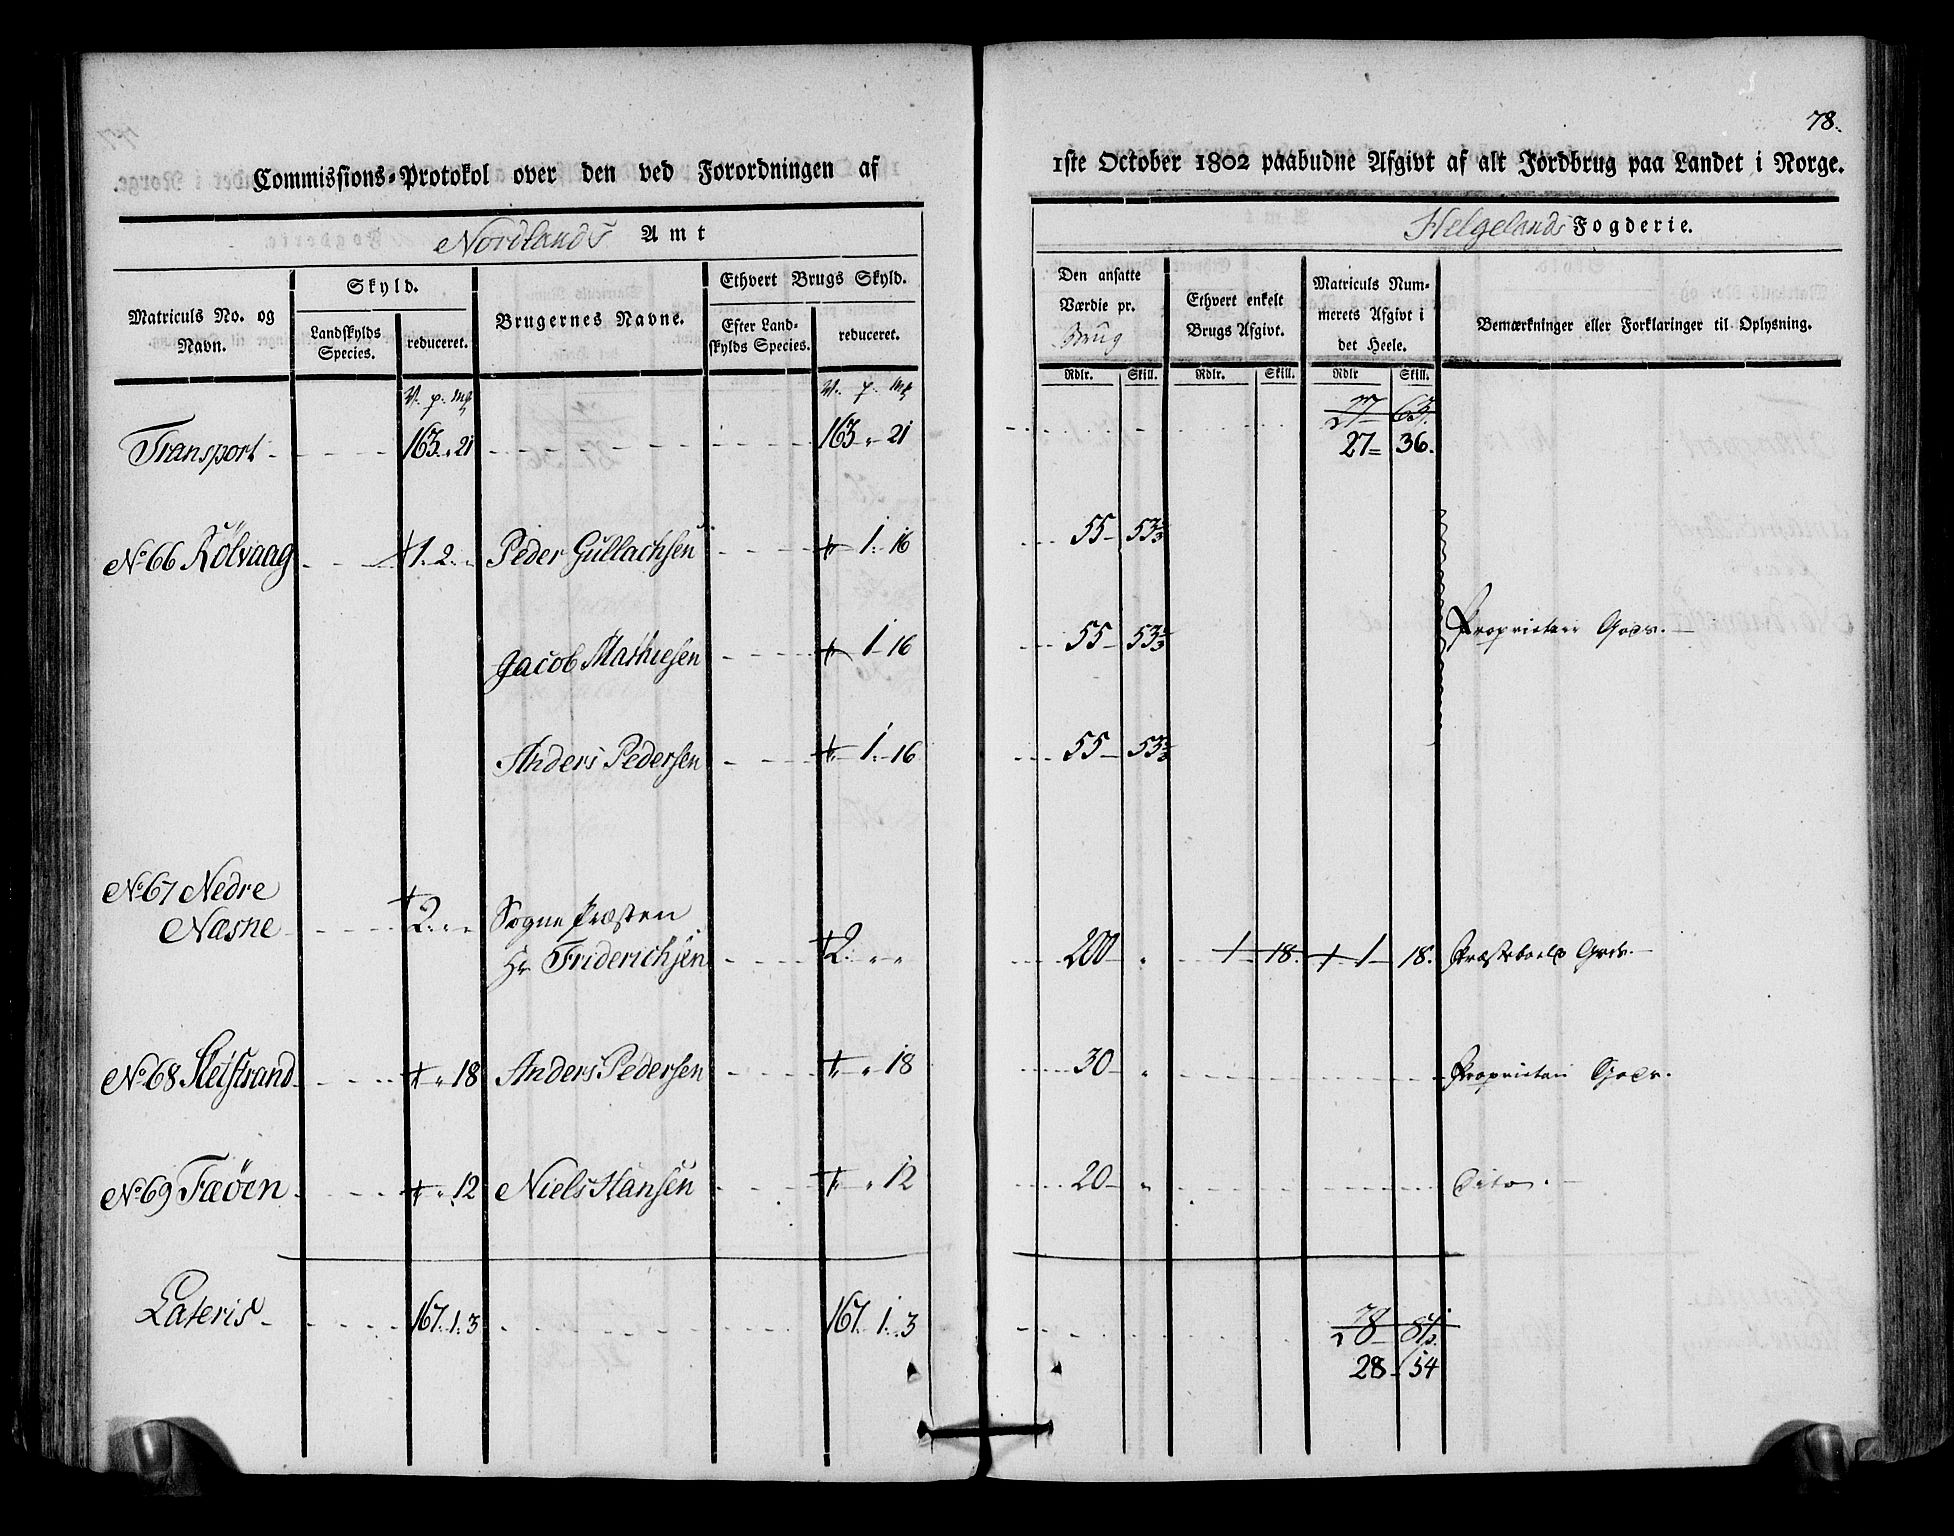 78.
Commissions-Protokol over den ved Forordningen af
1ste October 1802 paabudne Afgivt af alt Jordbrug paa Landet i Norge.
Nordlands Amt
Helgelands Fogderie.
Matriculs No. og Navn.
Skyld.
Landskylds Species.
reduceret.
Brugernes Navne.
Ethvert Brugs Skyld.
Efter Landskylds Species.
reduceret.
Den ansatte Værdie pr. Brug
Ethvert enkelt Brugs Afgivt.
Matriculs Nummerets Afgivt i det Heele.
Bemærkninger eller Forklaringer til Oplysning.
Rdlr. Skill. Rdlr. Skill. Rdlr Skill.
V. p. Mk V. p. Mk
27 63.
Transport 163 " 21 163 " 21 27 = 36.
No 66 Kölvaag 1. 2. " Peder Gullachsen 1. 16 55 53 2/3
Jacob Mathiesen 1 16 55 53 2/3 Proprietair Gods.
Anders Pedersen 1. 16 55 53 2/3
No 67 Nedre
Næsne 2. " " Sogne Præsten
Hr Friderichsen 2. " " 200 " 1 18. 1 18. Præsteboels Gods.
No 68 " 18 Anders Pedersen " 18 30 " Proprietair Gods.
No 69 Fæöen " 12 Niels Hansen " 12 20 " Dito.
Lateris 167. 1. 3 167. 1. 3 28 81.
28 54